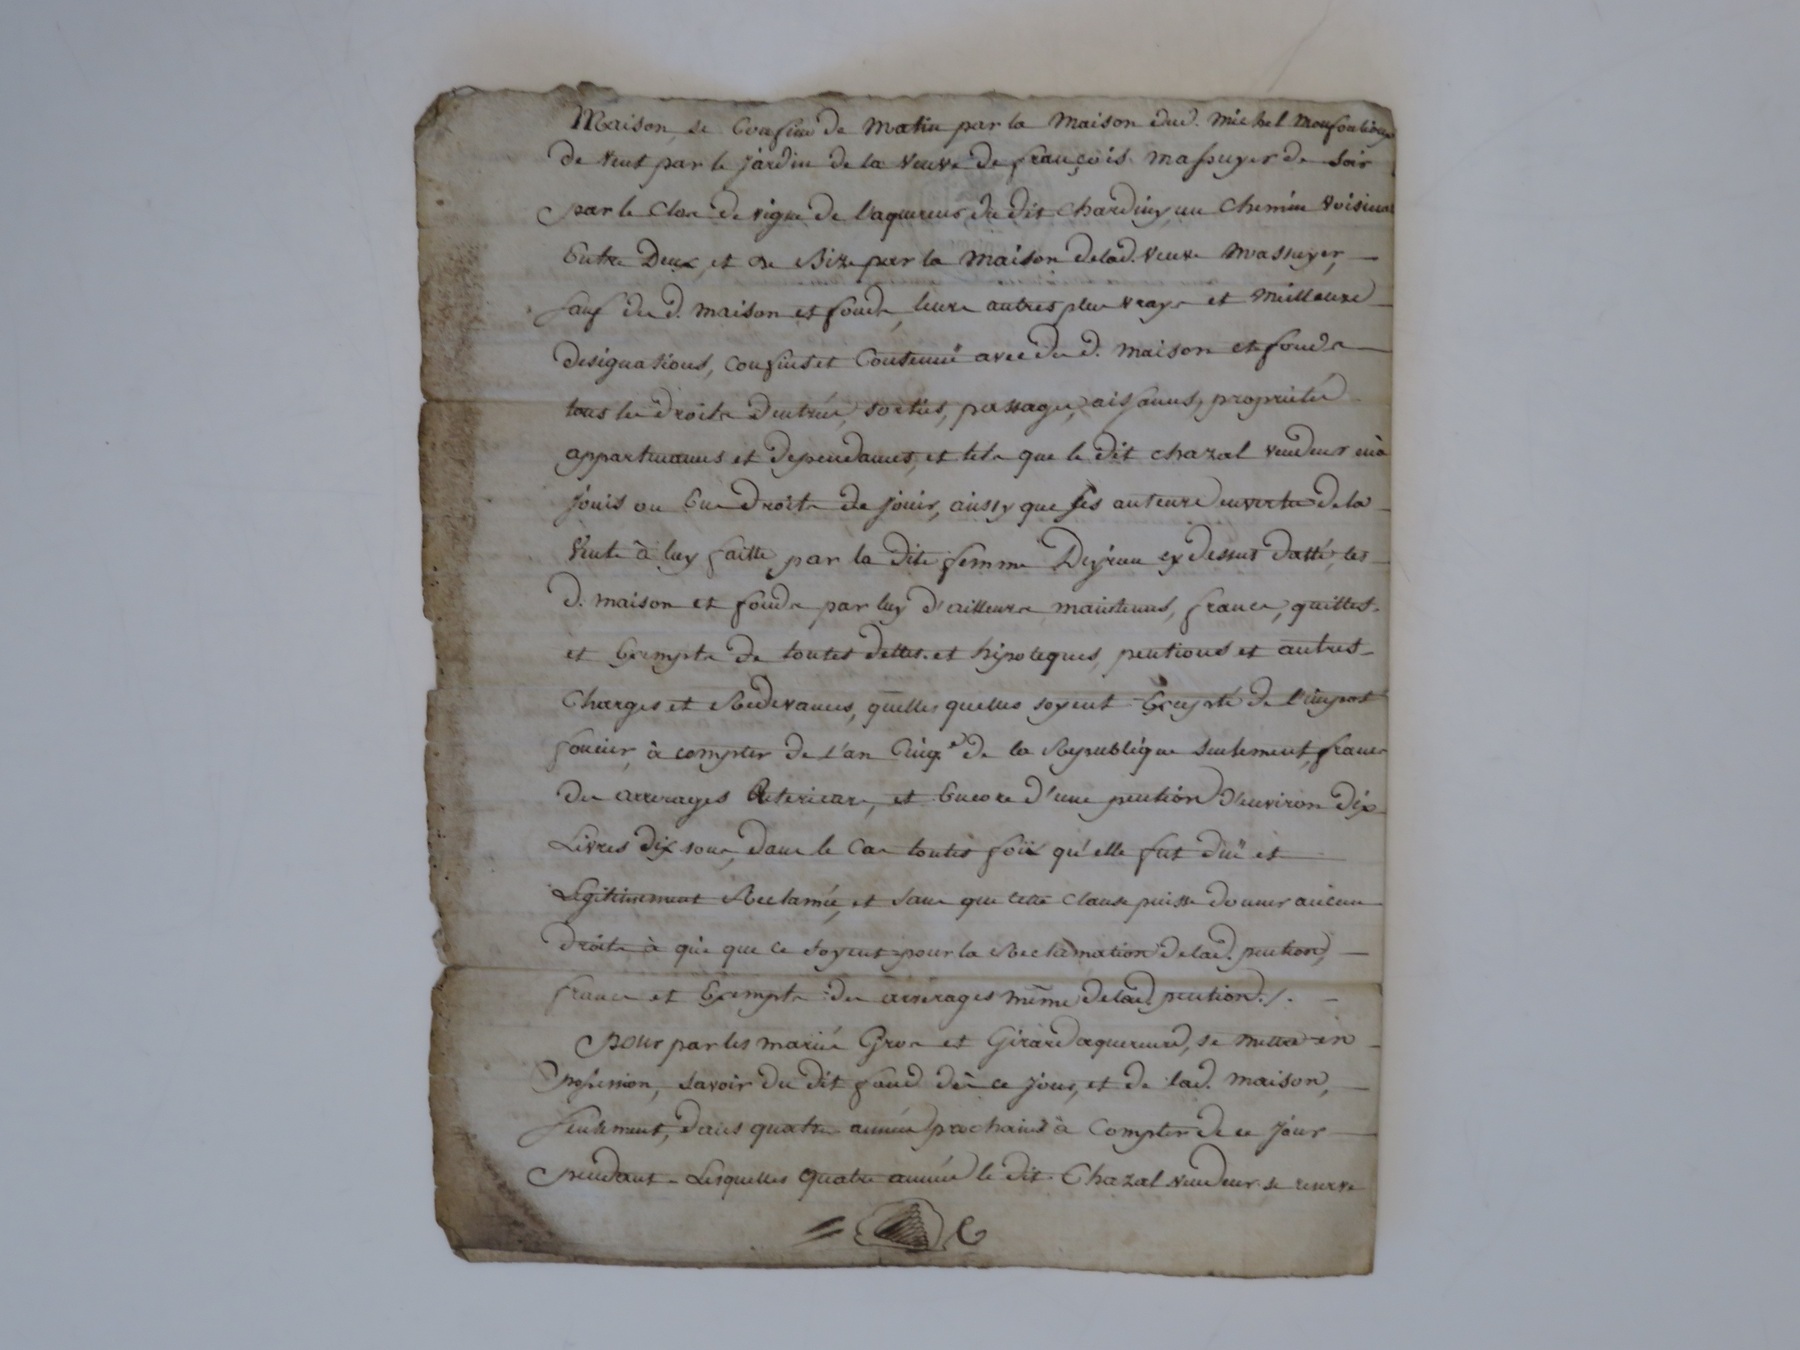 Maison, se Confine de Matin par la Maison dud. Michel
de vent par le jardin de la veuve de françois massuyer de soir
par le Clos de vigne de l'aquereur du dit chardiny un Chemin voisinal
Entre Deux, et de Bize par la maison delad. veuve Massuyer,
sauf du d. maison et fonds, leurs autres plus vrays et Meilleures
designations, confins et Contenuë avec du d. maison et fonds
tous les droits d'entrées, sorties, passages, aisances, proprietés
appartenances et dependances, et tels que le dit chazal vendeur en à
jouis ou Eue droits de jouir, ainsy que ses auteurs en vertu de la
Vente à luy faitte par la dite femme Dejeau cy dessus datté, les
d. maison et fonds par luy d'ailleurs maintenus, francs, quittes
et Exempts de toutes dettes et hipoteques, pentions et autres
Charges et Redevances, quelles quelles soyent Excepté de l'impot
foncier, à compter de l'an Cinq.e de la Republique seulement, francs
des arrerages anterieurs, et Encore d'une pention d'environ dix
Livres dix sous, dans le Cas toutes foix qu'elle fut duë et
Legitimement Reclamée, et sans que cette clause puisse donner aucun
droits à qui que ce soyent pour la Reclamation delad. pention,
francs et Exempts des arrerages même delad. pention./.
Pour par les mariés Gros et Girard aquereurs, se mettre en
possession, savoir du dit fond dès ce jour, et de lad. maison,
seulement, dans quatre années prochaines à Compter de ce jour
pendant Lesquelles quatre années le dit Chazal vendeur se reserve